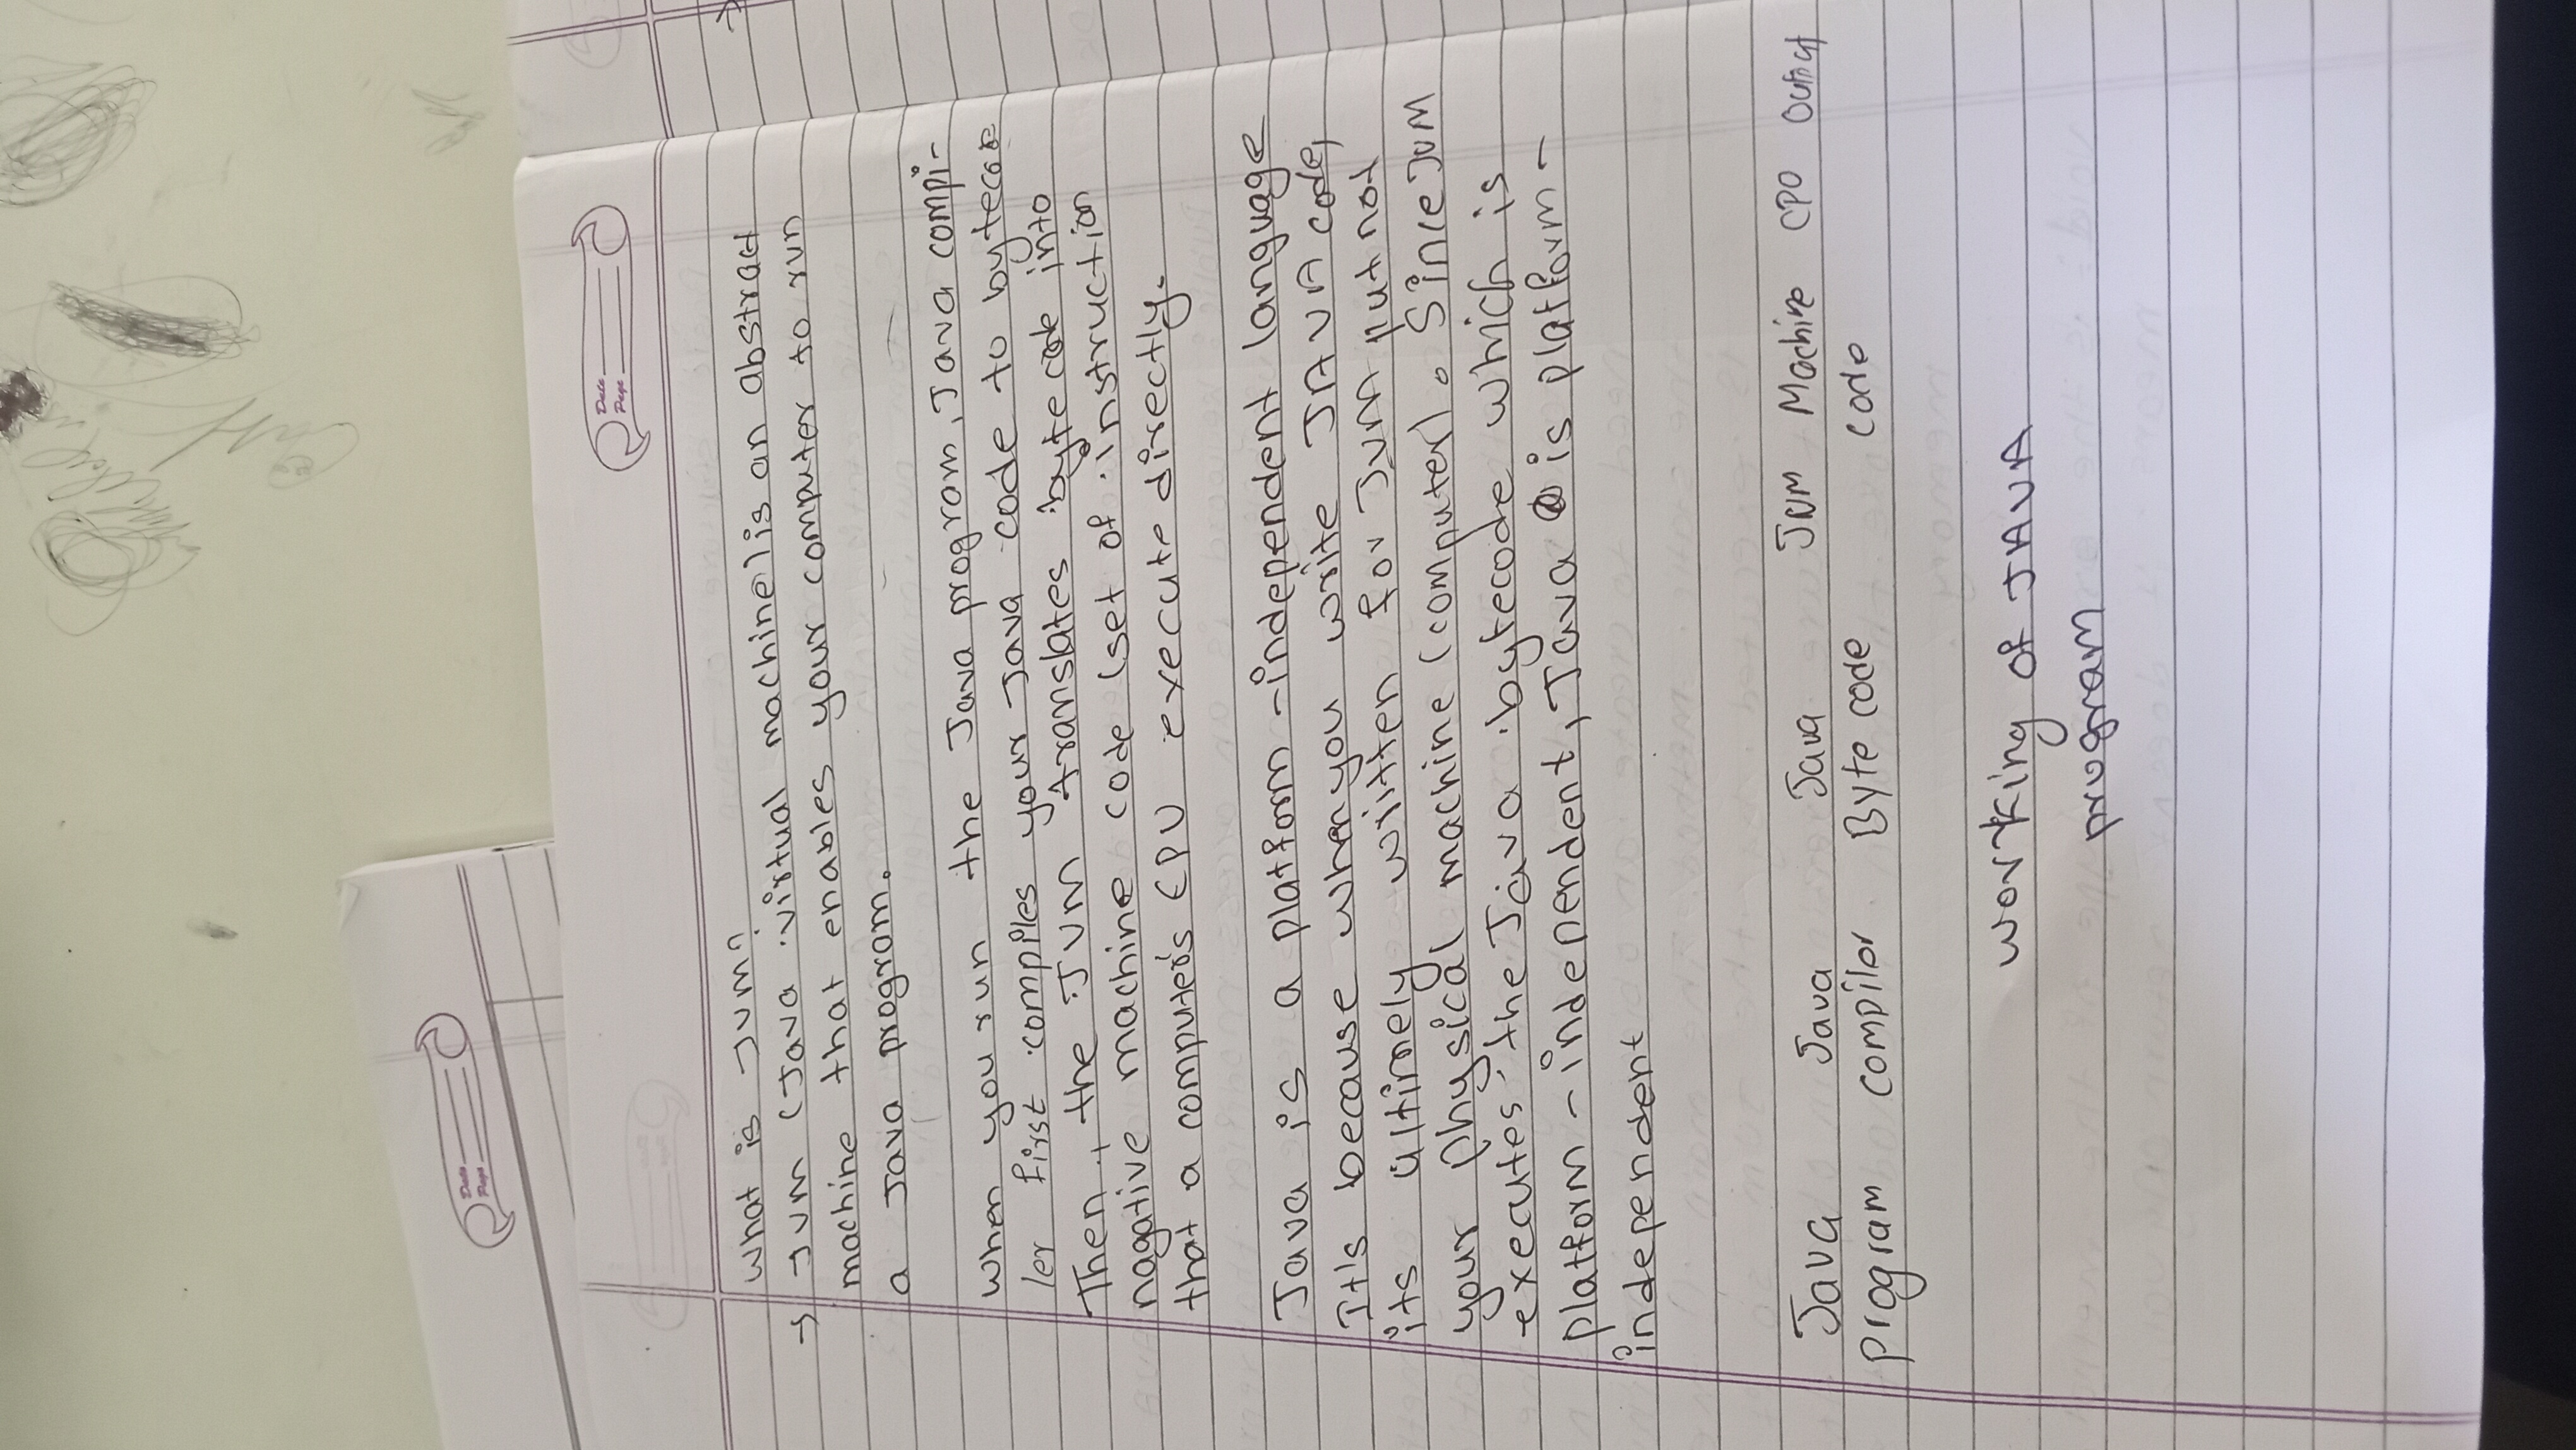 Date
Page
Date
Page
What is JVM?
→ JVM (Java virtual machine) is an abstract
machine that enables your computer to run
a Java program.
When you run the Java program, Java compi-
ler first compiles your Java code to bytecode
Then, the JVM translates bytecode into
nagative machine code (set of instruction
that a computer's CPU execute directly.
Java is a platform-independent language
It's because when you write JAVA code,
its ultimely written for JVM but not
your physical machine (computer). Since JVM
executes the Java bytecode which is
platform-independent, Java is platform-
independent
Java Java Java JVM Machine CPU Output
program compiler Byte code code
working of JAVA
program